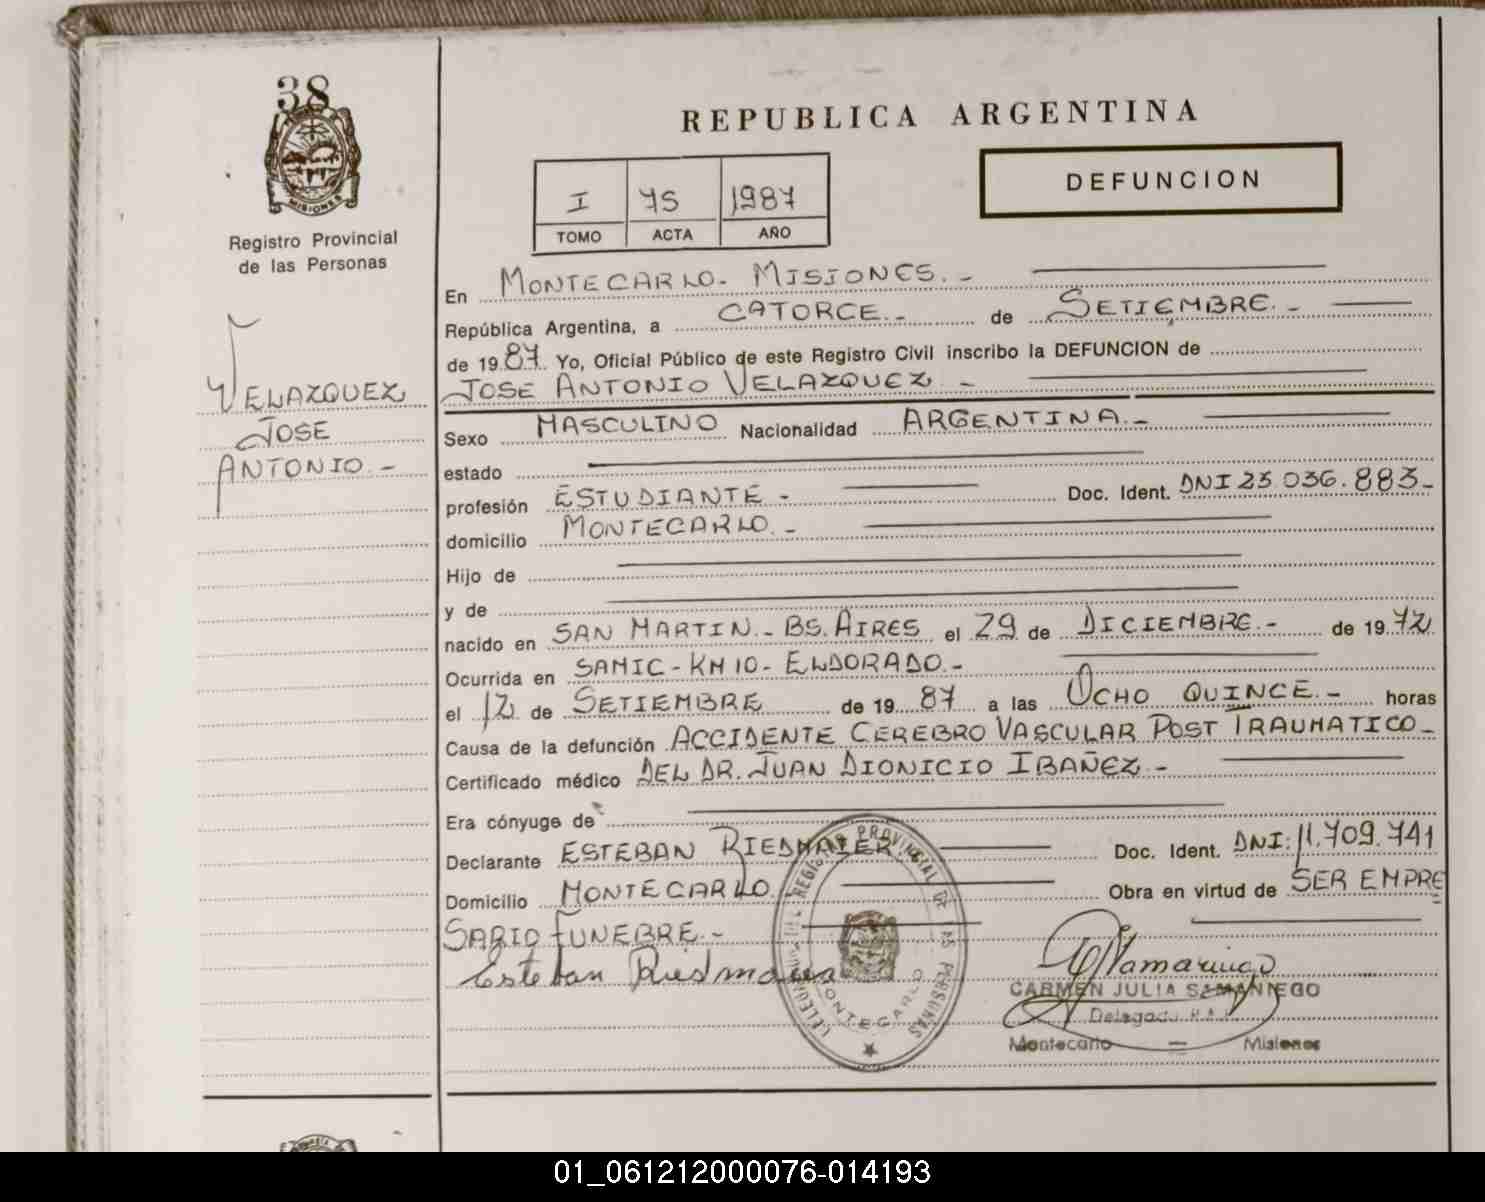 38
MISIONES
Registro Provincial
de las Personas
VELAZQUEZ
JOSE
ANTONIO.-
REPUBLICA ARGENTINA
DEFUNCION
I 75 1987
TOMO ACTA AÑO
En MONTECARLO.- MISIONES.-
República Argentina, a CATORCE.- de SETIEMBRE.-
de 19 87. Yo, Oficial Público de este Registro Civil inscribo la DEFUNCION de
JOSE ANTONIO VELAZQUEZ -
Sexo MASCULINO Nacionalidad ARGENTINA.-
estado
profesión ESTUDIANTE - Doc. Ident. DNI 23.036.883-
domicilio MONTECARLO.-
Hijo de
y de
nacido en SAN MARTIN.- BS. AIRES el 29 de DICIEMBRE.- de 19 72
Ocurrida en SAMIC-KM10- ELDORADO.-
el 12 de SETIEMBRE de 19 87 a las OCHO QUINCE.- horas
Causa de la defunción ACCIDENTE CEREBRO VASCULAR POST TRAUMATICO-
Certificado médico DEL DR. JUAN DIONICIO IBAÑEZ.-
Era cónyuge de
Declarante ESTEBAN RIEDMAIER Doc. Ident. DNI: 11.709.741
Domicilio MONTECARLO Obra en virtud de SER EMPRE
SARIO FUNEBRE.-
Esteban Riedmaier
DEL REGISTRO PROVINCIAL DE LAS PERSONAS
MONTECARLO
CARMEN JULIA SAMANIEGO
Delegada
Montecarlo - Misiones
01_061212000076-014193